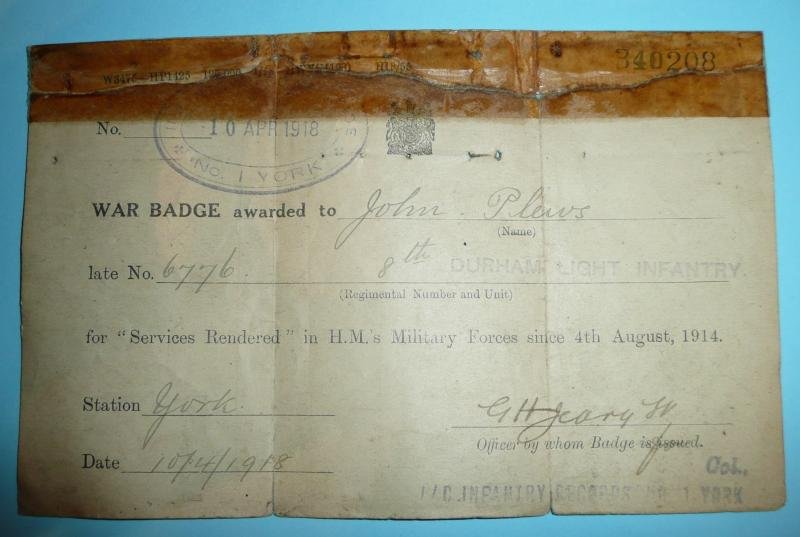 W3475—HP1425 340208
No. 10 APR 1918
No. 1 YORK
WAR BADGE awarded to John Plews
(Name)
late No. 6776 8th DURHAM LIGHT INFANTRY.
(Regimental Number and Unit)
for "Services Rendered" in H.M.'s Military Forces since 4th August, 1914.
Station York
Officer by whom Badge is issued.
Date 10/4/1918 Col.,
I/C. INFANTRY RECORDS No. 1 YORK